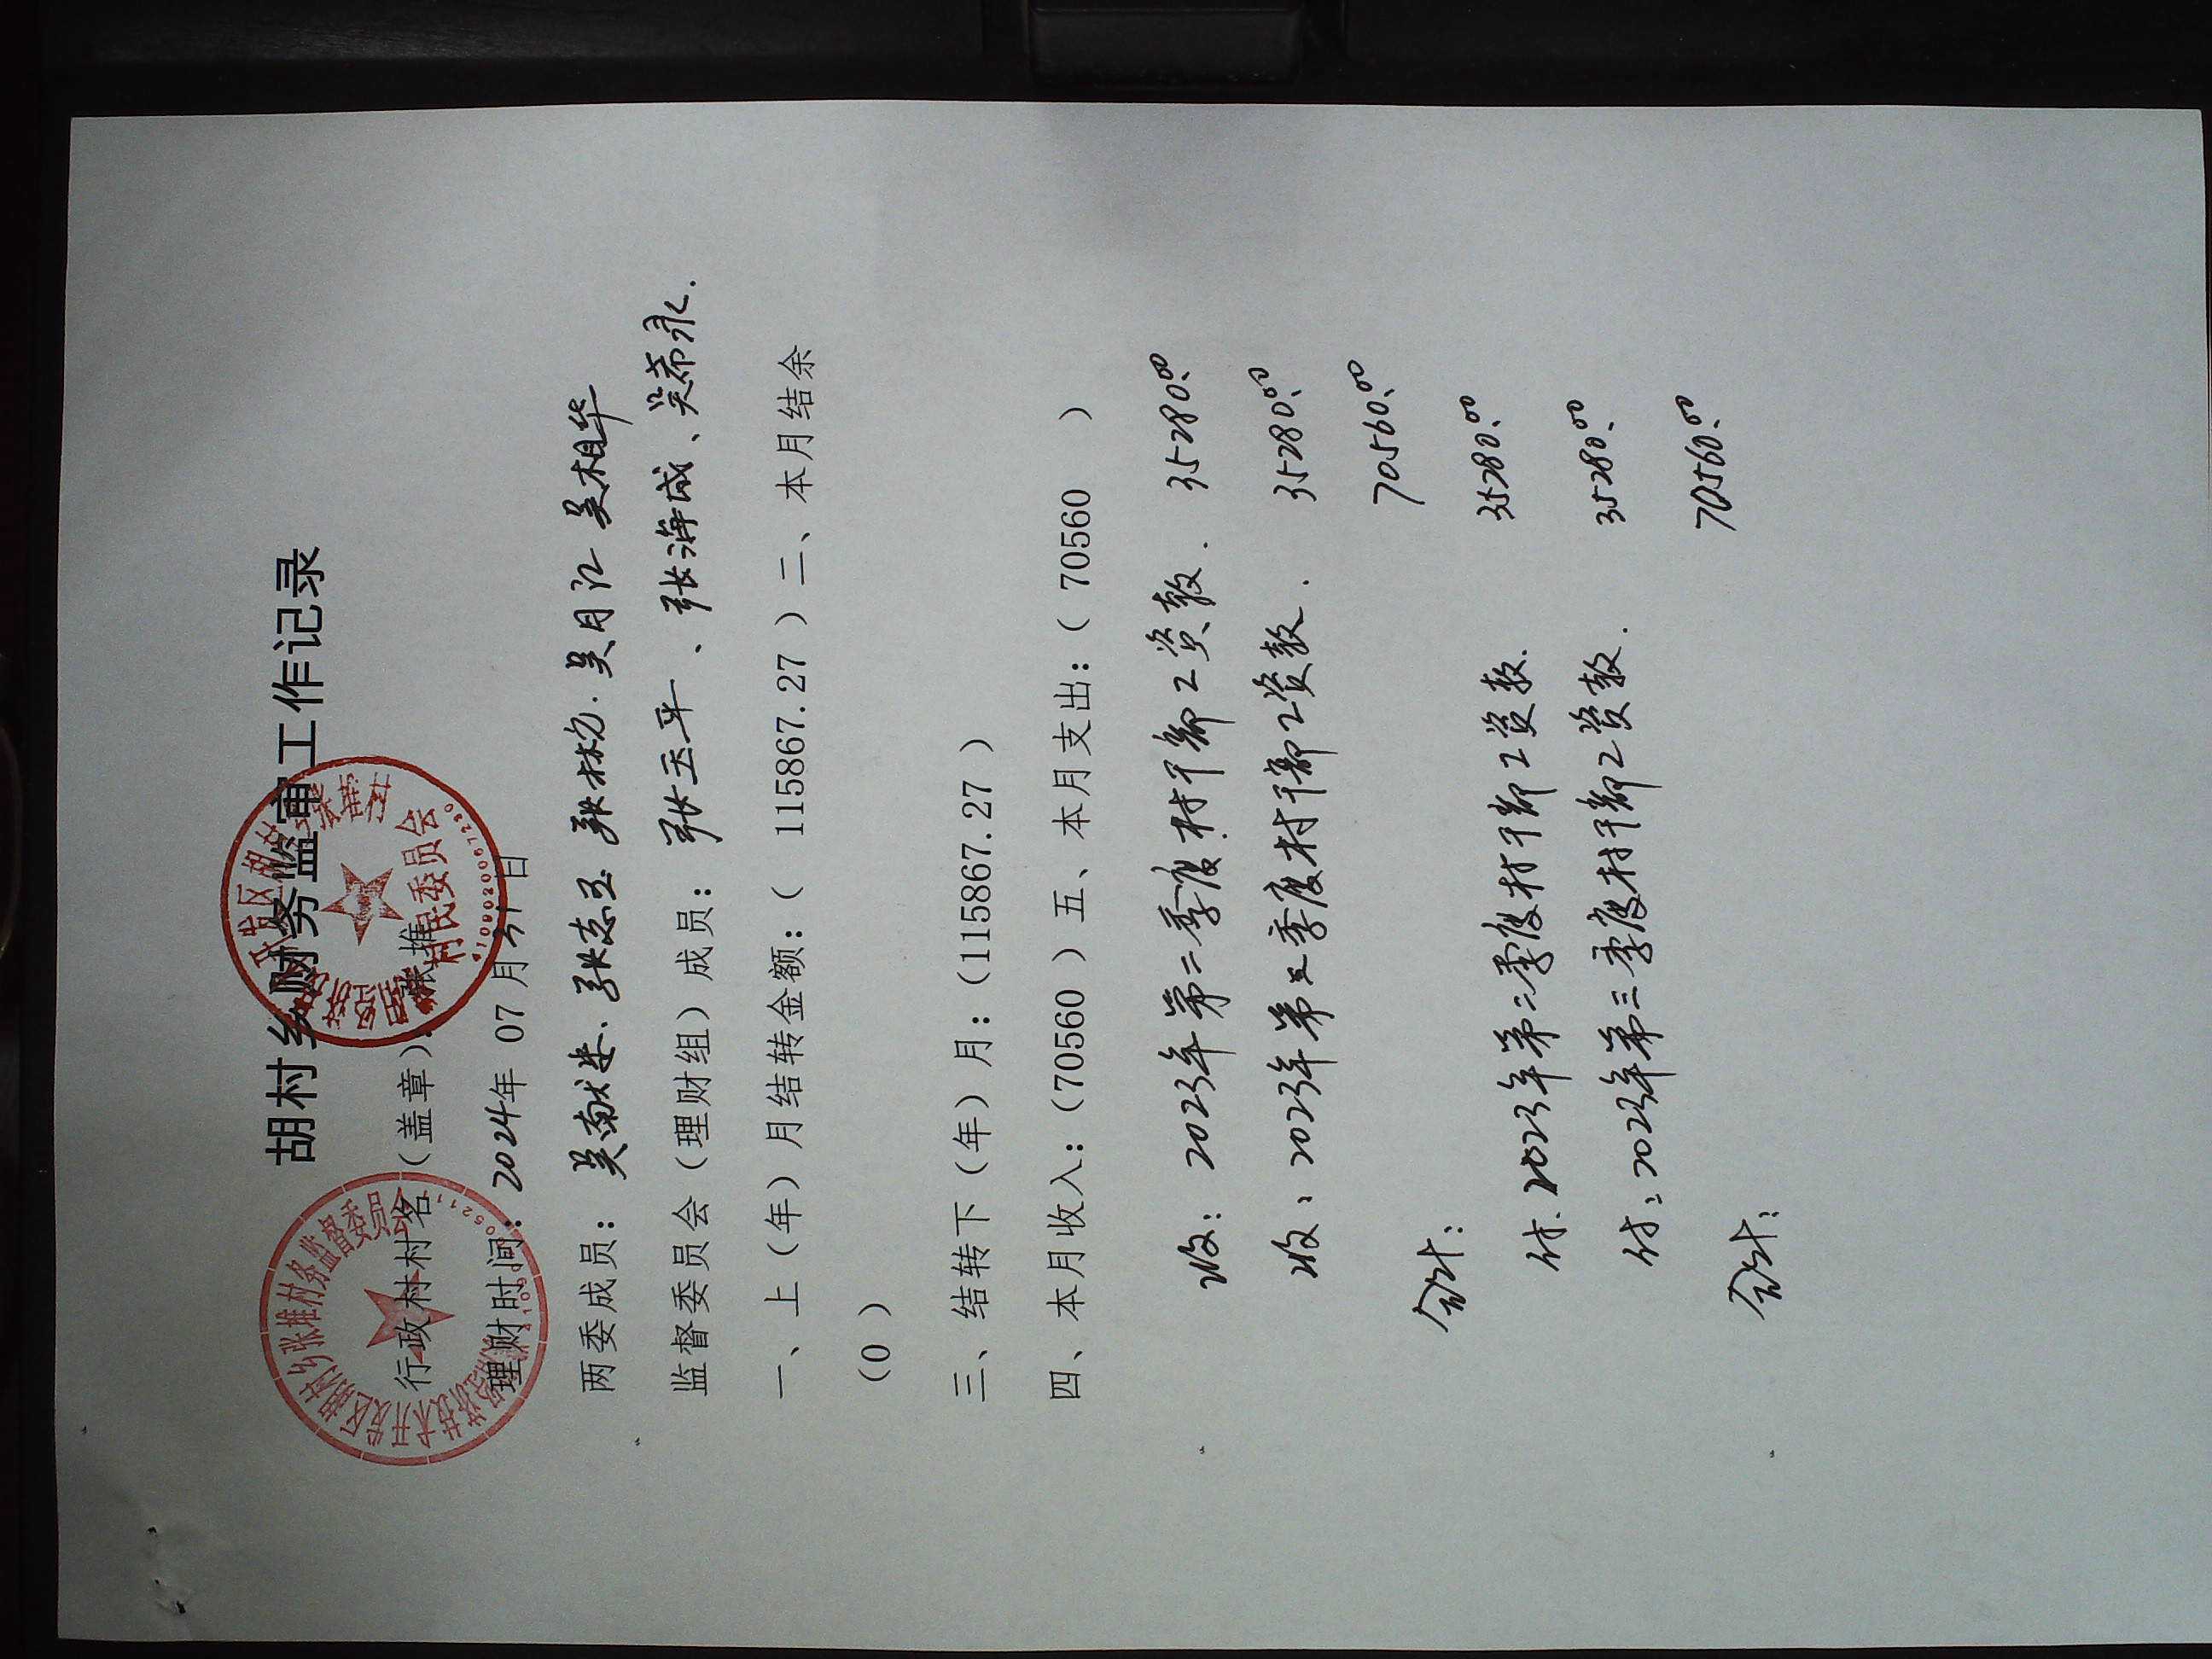 胡村乡财务监审工作记录
行政村村名（盖章）：张堆
理财时间：2024年07月31日
两委成员：吴献忠、张志玉 张林物. 吴月江 吴相华
监督委员会（理财组）成员：张玉平、张海成、吴希永.
一、上（年）月结转金额：（ 115867.27 ）二、本月结余
（0）
三、结转下（年）月：（115867.27 ）
四、本月收入：（70560 ）五、本月支出：（ 70560 ）
收：2023年第二季度村干部工资款. 35280.00
收：2023年第三季度村干部工资款. 35280.00
合计： 70560.00
付：2023年第二季度村干部工资款. 35280.00
付：2023年第三季度村干部工资款. 35280.00
合计： 70560.00